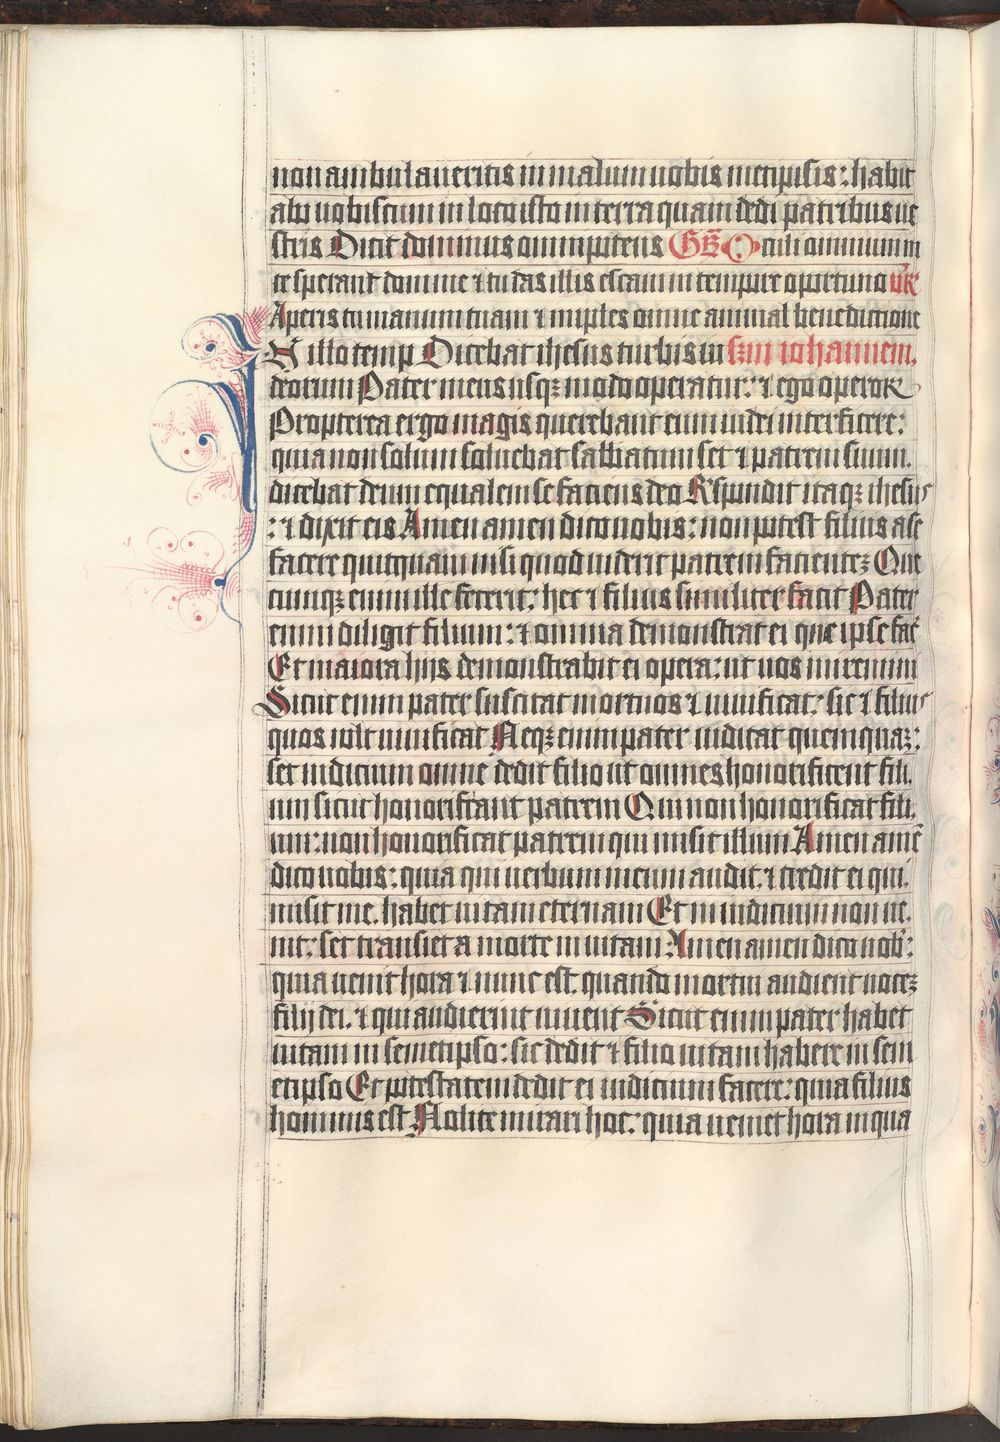 non ambulaueritis in malum uobis metipsis : habit
abo uobiscum in loco isto in terra quam dedi patribus ue
stris Dicit dominus omnipotens Gr̄ Oculi omnium in
te sperant domine ⁊ tu das illis escam in tempore oportuno vr̄
Aperis tu manum tuam ⁊ imples omne animal benedictione
N illo temp Dicebat ihesus turbis iu scdm iohannem.
deorum Pater meus usqꝫ modo operatur : ⁊ ego operor
Propterea ergo magis querebant eum iudei interficere :
quia non solum soluebat sabbatum set ⁊ patrem suum.
dicebat deum equalem se faciens deo Respondit itaqꝫ ihesus
: ⁊ dixit eis Amen amen dico uobis : non potest filius a se
facere quicquam nisi quod uiderit patrem facienteꝫ Que
cunqꝫ enim ille fecerit : hec ⁊ filius similiter facit Pater
enim diligit filium : ⁊ omnia demonstrat ei que ipse facͥ
Et maiora hijs demonstrabit ei opera : ut uos miremini
Sicut enim pater suscitat mortuos ⁊ uiuificat : sic ⁊ filius
quos uult uiuificat Neqꝫ enim pater iudicat quemquaꝫ :
set iudicium omne dedit filio ut omnes honorificent fili.
um sicut honorificant patrem Qui non honorificat fili.
um : non honorificat patrem qui misit illum Amen amē
dico uobis : quia qui uerbum meum audit. ⁊ credit ei qui.
misit me. habet uitam eternam Et in iudicium non ue.
nit : set transiet a morte in uitam : Amen amen dico uob :
quia uenit hora ⁊ nunc est. quando mortui audient uoceꝫ
filij dei. ⁊ qui audierint uiuent Sicut enim pater habet
uitam in semetipso : sic dedit ⁊ filio uitam habere in sem
etipso Et potestatem dedit ei iudicium facere : quia filius
hominis est Nolite mirari hoc : quia ueniet hora in qua